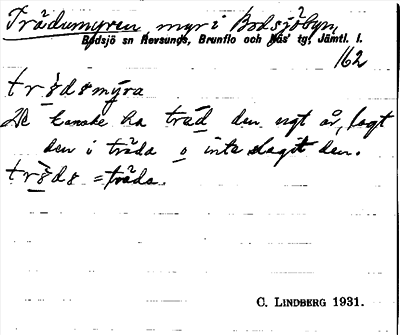 Trädumyren myr i Bodsjöbyn,
Bodsjö sn Revsunds, Brunflo och Näs' tg, Jämtl. l.
162
De kanske ha träd den ngt år, lagt
den i träda o inte slagit den.
= träda.
C. LINDBERG 1931.